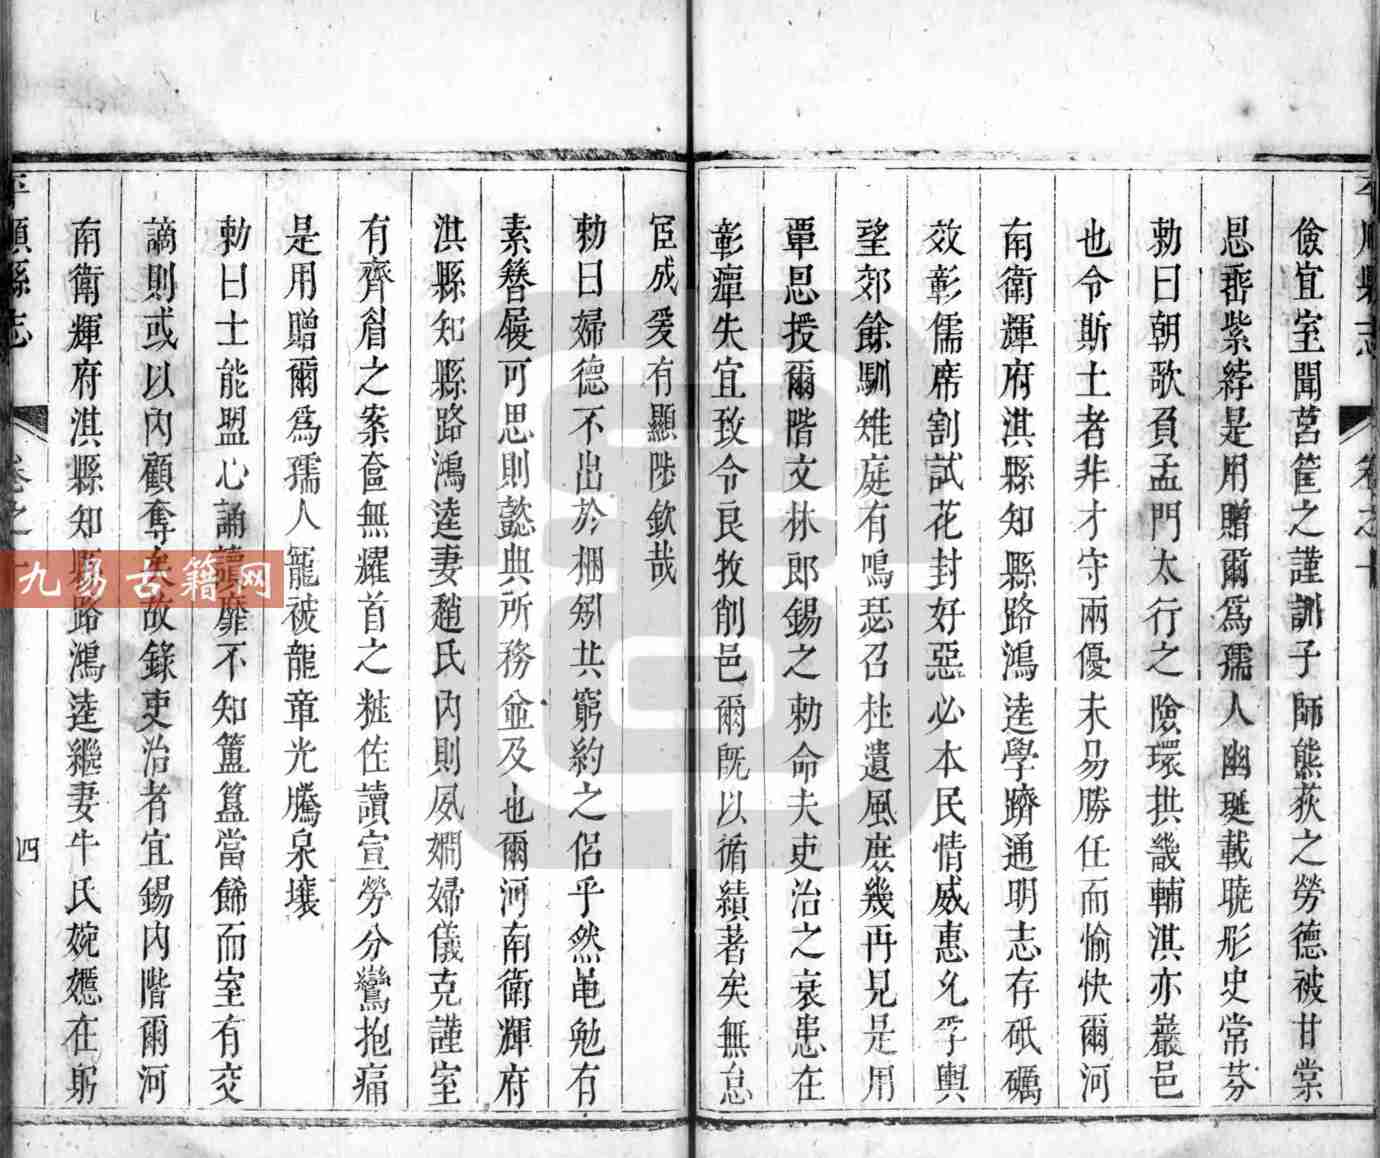 儉宜室聞莒筐之謹訓子師熊荻之勞德被甘棠
恩垂紫綍是用贈爾爲孺人幽埏載曉彤史常芬
勅曰朝歌負孟門太行之險環拱畿輔淇亦巖邑
也令斯土者非才守兩優未易勝任而愉快爾河
南衛輝府淇縣知縣路鴻逵學躋通明志存砥礪
效彰儒席割試花封好惡必本民情威惠允孚輿
望郊餘馴雉庭有鳴瑟召杜遺風庶幾再見是用
覃恩授爾階文林郎錫之勅命夫吏治之衰患在
彰癉失宜致令良牧削邑爾既以循績著矣無怠
宦成爰有顯陟欽哉
勅曰婦德不出於梱矧共窮約之侶乎然黽勉有
素簪屨可思則懿典所務並及也爾河南衛輝府
淇縣知縣路鴻逵妻趙氏內則夙嫻婦儀克謹室
有齊眉之案奩無耀首之粧佐讀宣勞分鸞抱痛
是用贈爾爲孺人寵被龍章光騰泉壤
勅曰士能盟心誦讀靡不知簠簋當飾而室有交
謫則或以內顧奪矣故錄吏治者宜錫內階爾河
南衛輝府淇縣知縣路鴻逵繼妻牛氏婉嬺在躬
平順縣志
卷之十
四
九易古籍网